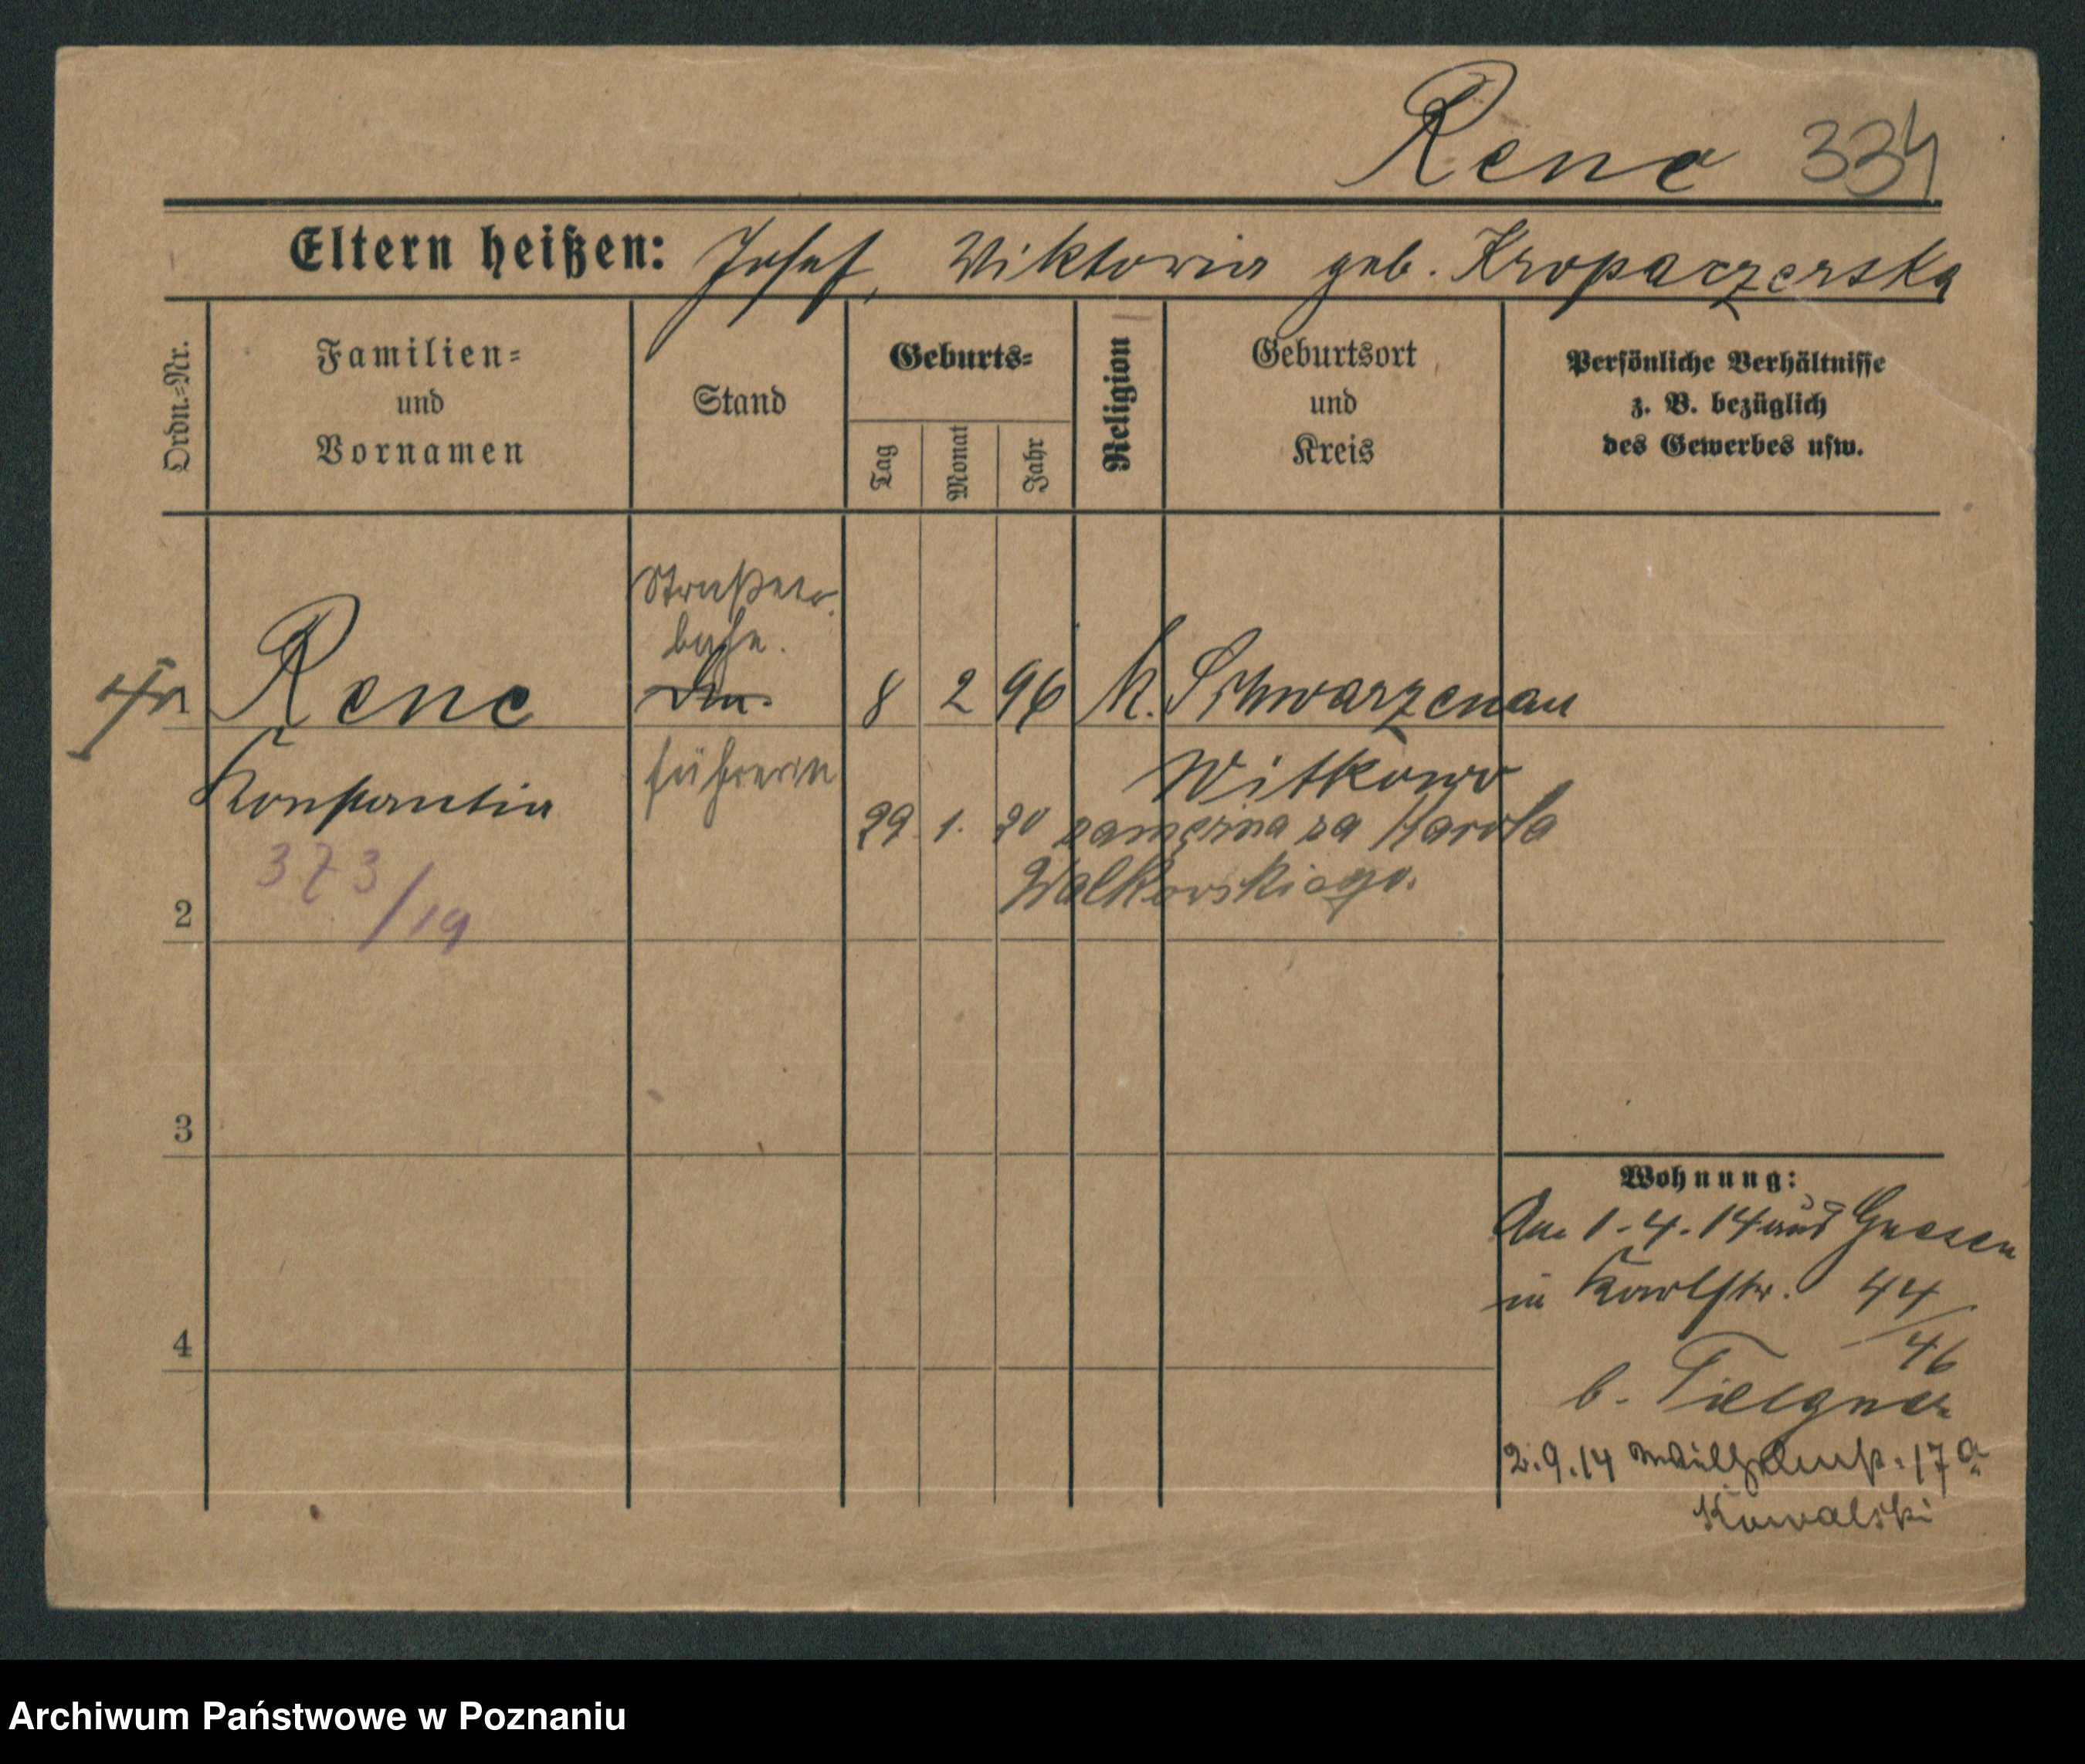 Renc 334
Eltern heißen: Josef, Wiktoria geb. Kropaczerska
Ordn.-Nr.
Familien-
und
Vornamen
Stand
Geburts-
Tag
Monat
Jahr
Religion
Geburtsort
und
Kreis
Persönliche Verhältnisse
z. B. bezüglich
des Gewerbes usw.
Straßen
bahn.
Renc 8 2 96 K. Schwarzenau
Konstantia führerin Witkowo
29. 1. 20 zamężna za Karola
Walkowskiego.
373/19
2
3
4
Wohnung:
Am 1-4-14 aus Gnesen
in Karlstr. 44/46
b.
2.9.14 17a
Kowalski
Archiwum Państwowe w Poznaniu